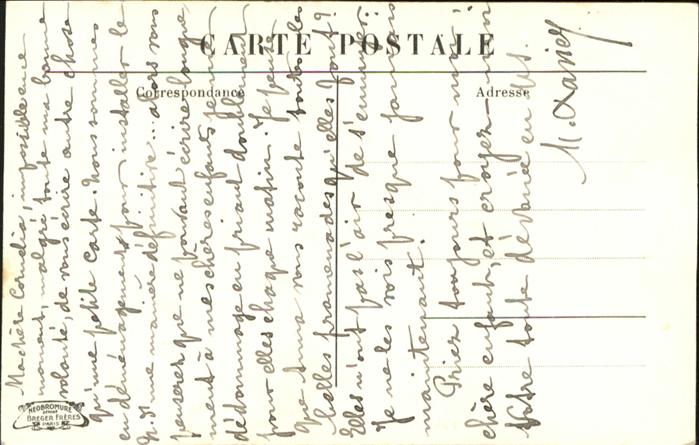 CARTE POSTALE
Correspondance
Adresse
Ma chère Cornélia, impossible en ce
moment, malgré toute ma bonne
volonté, de vous écrire autre chose
qu'une petite carte. Nous sommes
en déménagement pour installer le
d'une manière définitive... alors vous
penserez que ne pouvant écrire longue-
ment à mes chères enfants, je m'en
dédommage en priant doublement
pour elles chaque matin. Je pense
que Irma vous raconte toutes les
belles promenades qu'elles font?
Elles n'ont pas l'air de s'ennuyer!
Je ne les vois presque jamais
maintenant.
Priez toujours pour moi,
chère enfant, et croyez-moi
Votre toute dévouée en
M. Xavier
NEOBROMURE
BREGER FRÈRES
PARIS